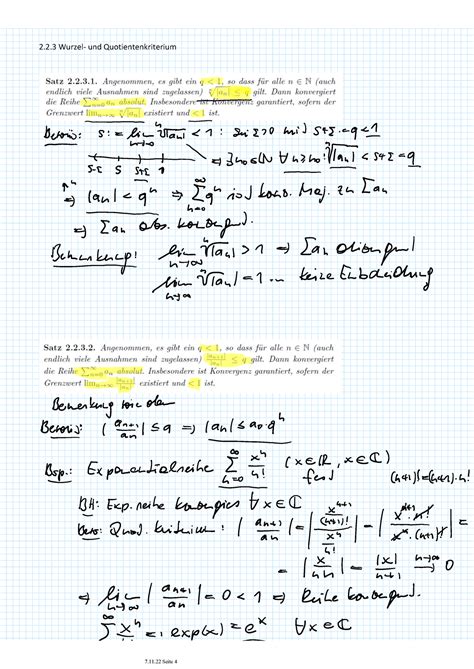 2.2.3 Wurzel- und Quotientenkriterium
Satz 2.2.3.1. Angenommen, es gibt ein q < 1, so dass für alle n ∈ ℕ (auch
endlich viele Ausnahmen sind zugelassen) ⁿ√|aₙ| ≤ q gilt. Dann konvergiert
die Reihe ∑ₙ₌₀^∞ aₙ absolut. Insbesondere ist Konvergenz garantiert, sofern der
Grenzwert limₙ→∞ ⁿ√|aₙ| existiert und < 1 ist.
Beweis: s := lim n→∞ ⁿ√|aₙ| < 1 : Sei ε>0 mit s+ε =: q < 1
⇒ ∃ n₀∈ℕ ∀ n≥n₀: ⁿ√|aₙ| < s+ε = q
s-ε s s+ε 1
⇒ |aₙ| < qⁿ ⇒ ∑ₙ₌₀^∞ qⁿ ist konv. Maj. zu ∑aₙ
⇒ ∑aₙ abs. konvergent.
Bemerkung: lim n→∞ ⁿ√|aₙ| > 1 ⇒ ∑aₙ divergent
lim n→∞ ⁿ√|aₙ| = 1 ... keine Entscheidung
Satz 2.2.3.2. Angenommen, es gibt ein q < 1, so dass für alle n ∈ ℕ (auch
endlich viele Ausnahmen sind zugelassen) |aₙ₊₁|/|aₙ| ≤ q gilt. Dann konvergiert
die Reihe ∑ₙ₌₀^∞ aₙ absolut. Insbesondere ist Konvergenz garantiert, sofern der
Grenzwert limₙ→∞ |aₙ₊₁|/|aₙ| existiert und < 1 ist.
Bemerkung wie oben
Beweis: |aₙ₊₁/aₙ| ≤ q ⇒ |aₙ| ≤ a₀·qⁿ
Bsp.: Exponentialreihe ∑ₙ₌₀^∞ xⁿ/n! (x∈ℝ, x∈ℂ)
fest (n+1)! = (n+1)·n!
BH: Exp.reihe konvergiert ∀ x∈ℂ
Bew: Quot. kriterium: |aₙ₊₁/aₙ| = |(xⁿ⁺¹/(n+1)!)/(xⁿ/n!)| = |xⁿ⁺¹·n!/(xⁿ·(n+1)!)| =
= |x/(n+1)| = |x|/(n+1) n→∞ → 0
⇒ lim n→∞ |aₙ₊₁/aₙ| = 0 < 1 ⇒ Reihe konvergent.
∑ xⁿ/n! =: exp(x) = eˣ ∀x∈ℂ
7.11.22 Seite 4